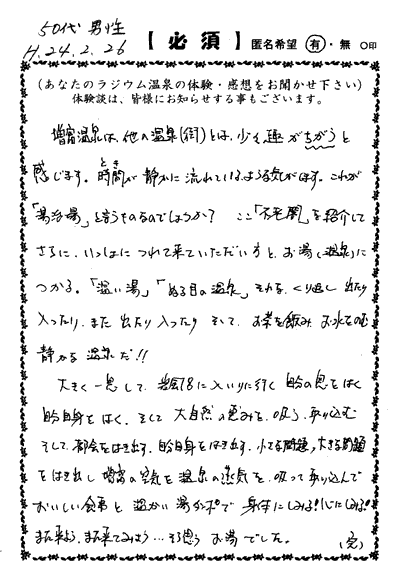 50代 男性
H.24.2.26
【必須】 匿名希望 有・無 ○印
(あなたのラジウム温泉の体験・感想をお聞かせ下さい)
体験談は、皆様にお知らせする事もございます。
増富温泉は、他の温泉(街)とは、少々趣がちがうと
感じます。時間(とき)が静かに流れているような気がします。これが
「湯治場」と言うものなのでしょうか? ここ「不老閣」を紹介して
さらに、いっしょにつれて来ていただいた方と、お湯(温泉)に
つかる。「温い湯」「ぬる目の温泉」それを、くり返し 出たり
入ったり、また 出たり 入ったり そして、お茶を飲み、お水をのむ
静かな 温泉だ!!
大きく一息して、岩風呂に入りに行く 自分の息をはく
自分自身をはく、そして 大自然の恵みを、吸う、取り込む
そして、都会をはき出す、自分自身をはき出す、小さな問題、大きな問題
をはき出し 増富の空気を 温泉の蒸気を、吸って取り込んで
おいしい食事と 温かい 湯タンポで 身体にしみる!心にしみる!
また来よう、また来てみよう…そう思う お湯でした。
(完)